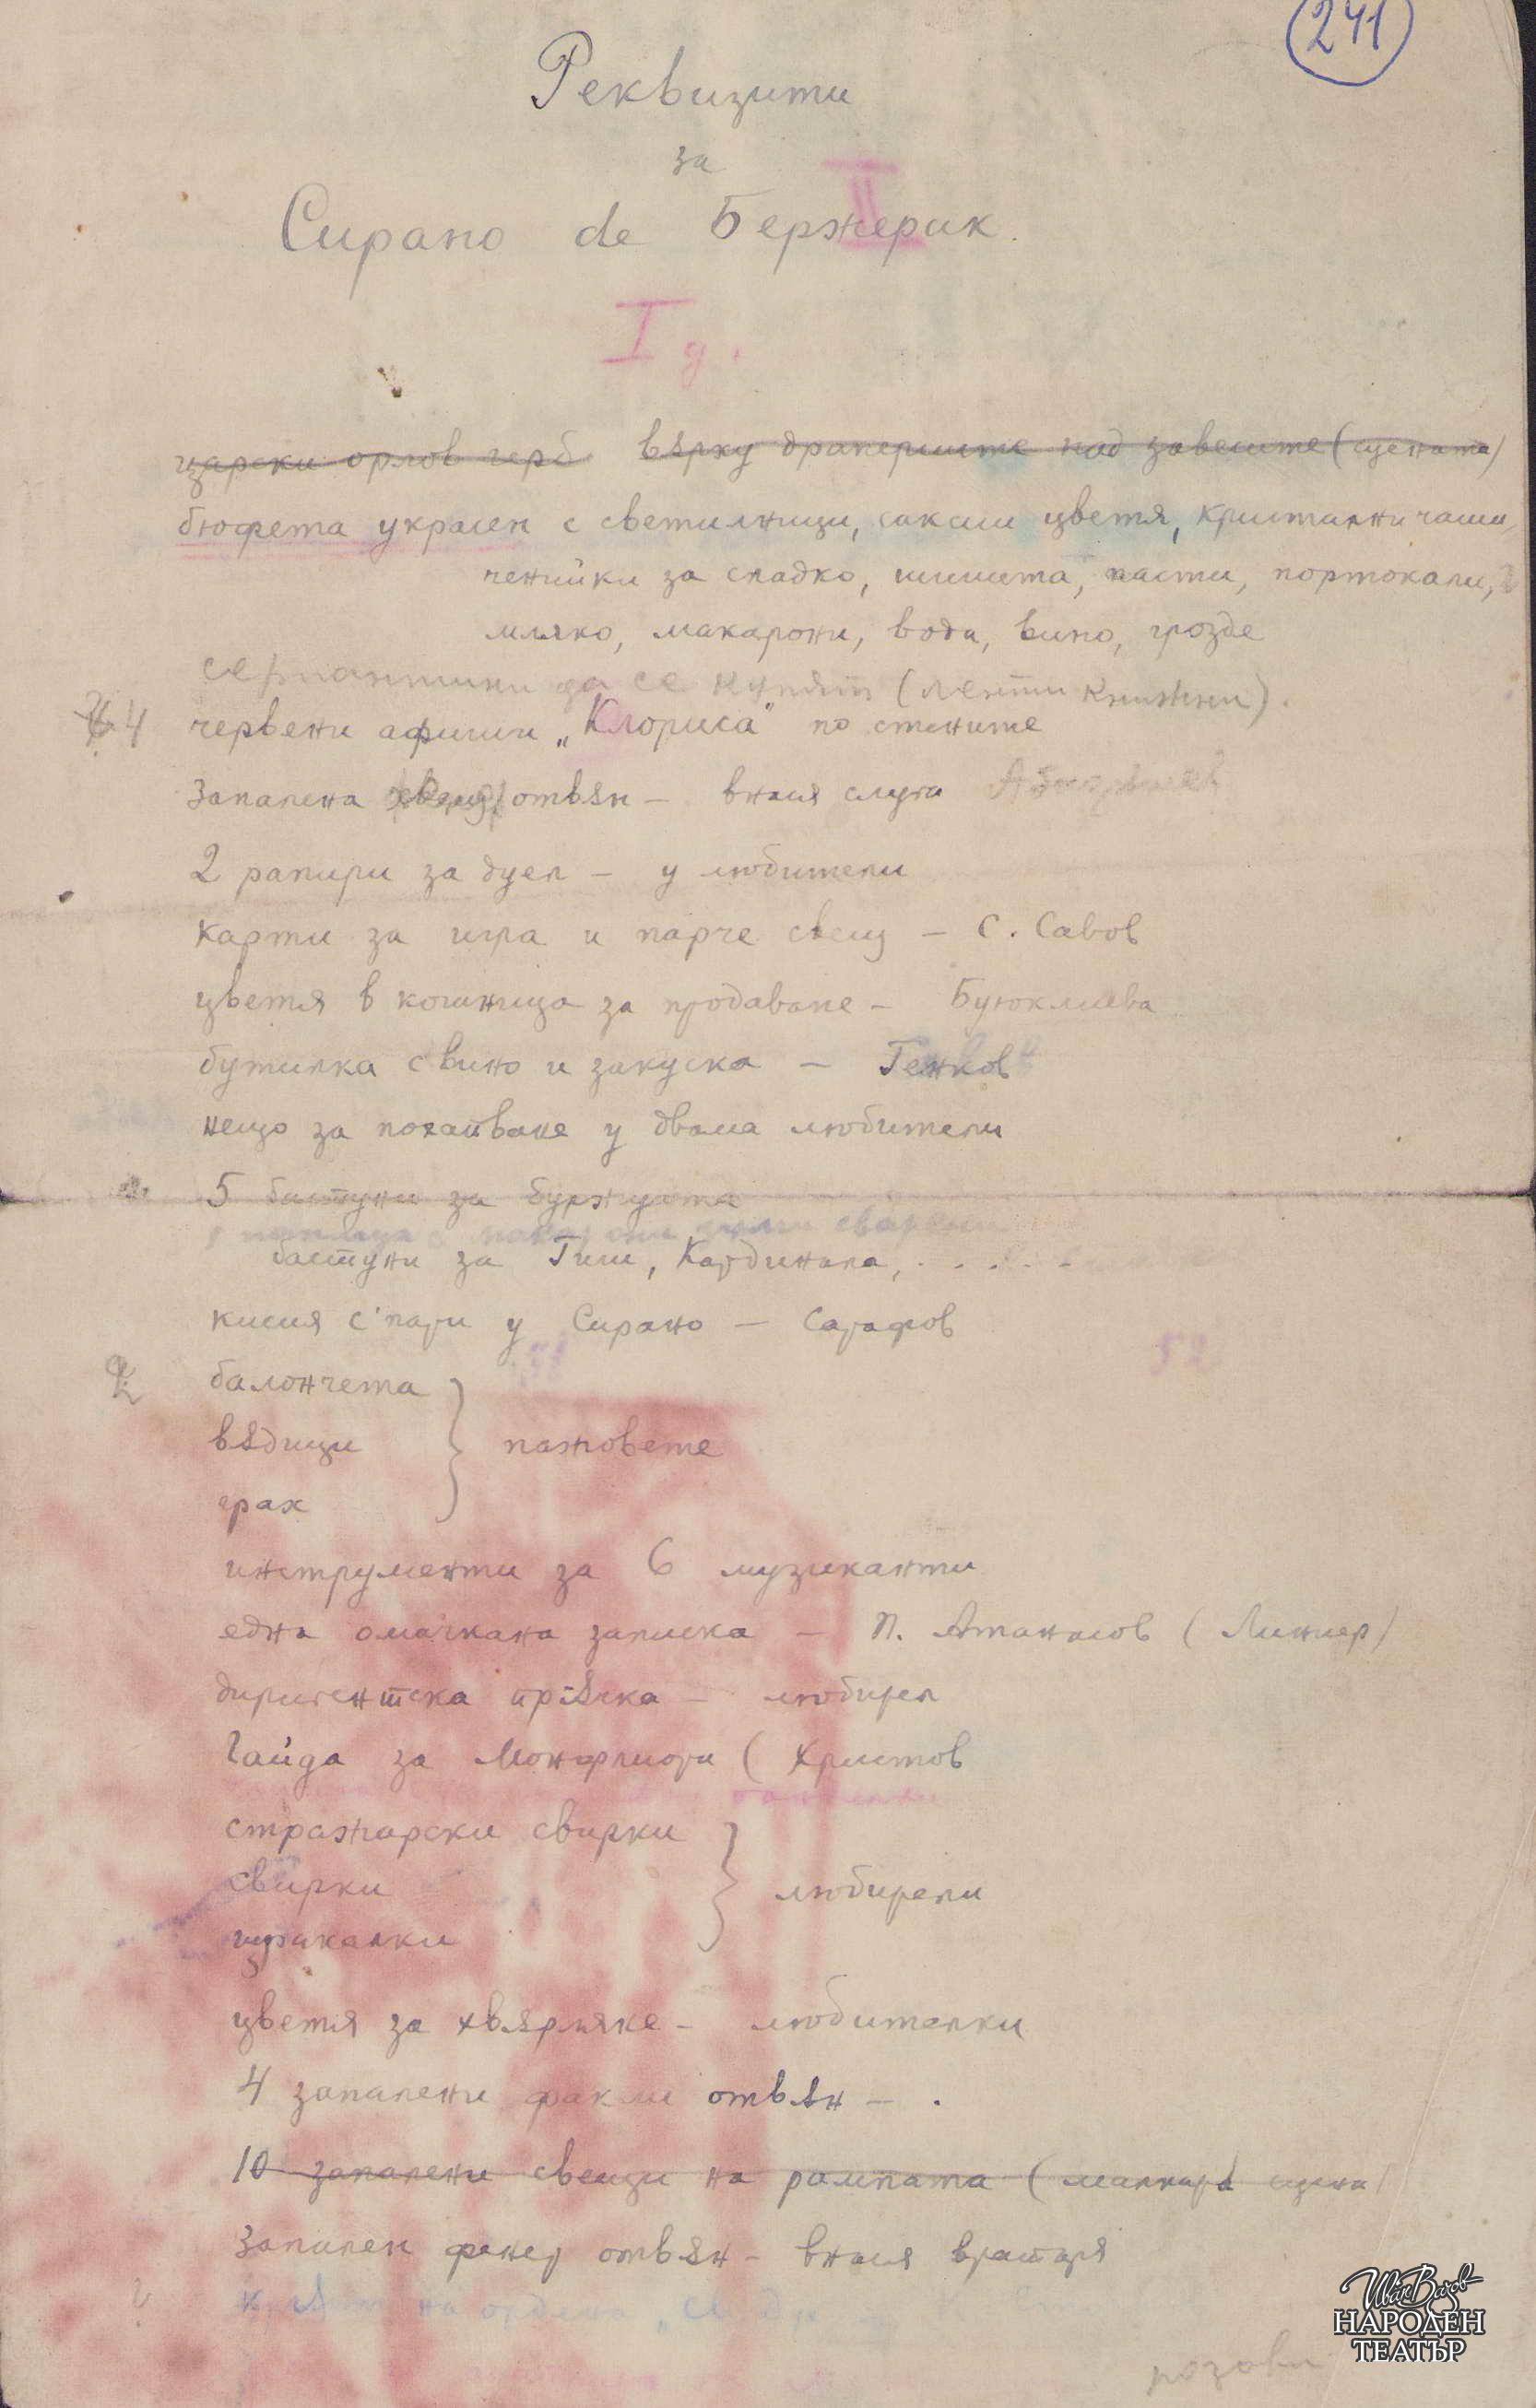 241
Реквизити
за
Сирано de Бержерак.
II
I д.
царски орлов герб вѫрху драпериите над завесите (сцената)
бюфета украсен с светилници, саксии цветя, кристални чаши,
ченийки за сладко, шишета, пасти, портокали,
мляко, макарони, вода, вино, грозде
серпантини да се купят (ленти книжни).
4 червени афиши „Клориса" по стените
Запалена свещ отвѫн – внася слуга
2 рапири за дуел – у любители
карти за игра и парче свещ – С. Савов
цветя в кошница за продаване – Буюклиева
бутилка с вино и закуска – Генков
нещо за похапване у двама любители
5 бастуни за буржуата
бастуни за Гиш, Кардинала, . . . . .
кисия с пари у Сирано – Сарафов
балончета
вѫдици } пажовете
грах
инструменти за 6 музиканти
една омачкана записка – П. Атанасов (Линиер)
диригентска прѫчка – любител
Гайда за Монфлюри ( Христов
стражарски свирки
свирки } любители
щракалки
цветя за хвѫрляне – любителки
4 запалени факли отвѫн – .
10 запалени свещи на рампата (малката сцена)
Запален фенер отвѫн – внася вратаря
на ордена
розови
Иван Вазов
НАРОДЕН
ТЕАТЪР